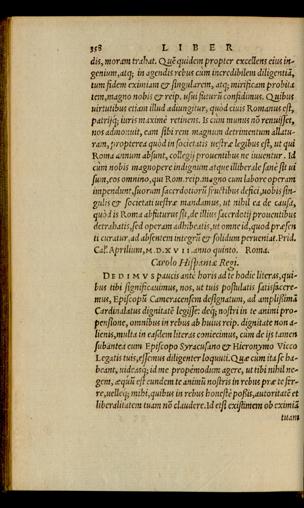 358 LIBER
dis, moram trahat. Quẽ quidem propter excellens eius in-
genium, atq; in agendis rebus cum incredibilem diligentiã,
tum fidem eximiam & singularem, atq; mirificam probita
tem, magno nobis & reip. usui futurũ confidimus. Quibus
uirtutibus etiam illud adiungitur, quod ciuis Romanus est,
patrijq; iuris maximè retinens. Is cum munus nõ renuisset,
nos admonuit, eam sibi rem magnum detrimentum allatu-
ram, propterea quòd in societatis uestræ legibus est, ut qui
Roma annum absunt, collegij prouentibus ne iuuentur. Id
cùm nobis magnopere indignum atque illiberale sanè sit ui
sum, eos omnino, qui Rom. reip. magno cum labore operam
impendunt, suorum sacerdotiorũ fructibus defici, uobis sin-
gulis & societati uestræ mandamus, ut nihil ea de causa,
quòd is Roma abfuturus sit, de illius sacerdotij prouentibus
detrahatis, sed operam adhibeatis, ut omne id, quod præsen
ti curatur, ad absentem integrũ & solidum perueniat. Prid.
Cal. Aprilium, M. D. XVII anno quinto. Roma.
Carolo Hispaniæ Regi.
DEDIMVS paucis antè horis ad te hodie literas, qui-
bus tibi significauimus, nos, ut tuis postulatis satisfacere-
mus, Episcopũ Cameracensem designatum, ad amplißimã
Cardinalatus dignitatẽ legisse: deq; nostri in te animi pro-
pensione, omnibus in rebus ab huius reip. dignitate non a-
lienis, multa in easdem literas coniecimus, cum de ijs tamen
subantea cum Episcopo Syracusano & Hieronymo Vicco
Legatis tuis, essemus diligenter loquuti. Quæ cum ita se ha-
beant, uideatq; id me propemodum agere, ut tibi nihil ne-
gem, æquũ est eundem te animũ nostris in rebus præ te fer-
re, uelleq; mihi, quibus in rebus honestè poßis, autoritatẽ et
liberalitatem tuam nõ claudere. Id etsi existimem ob eximiã
tuam